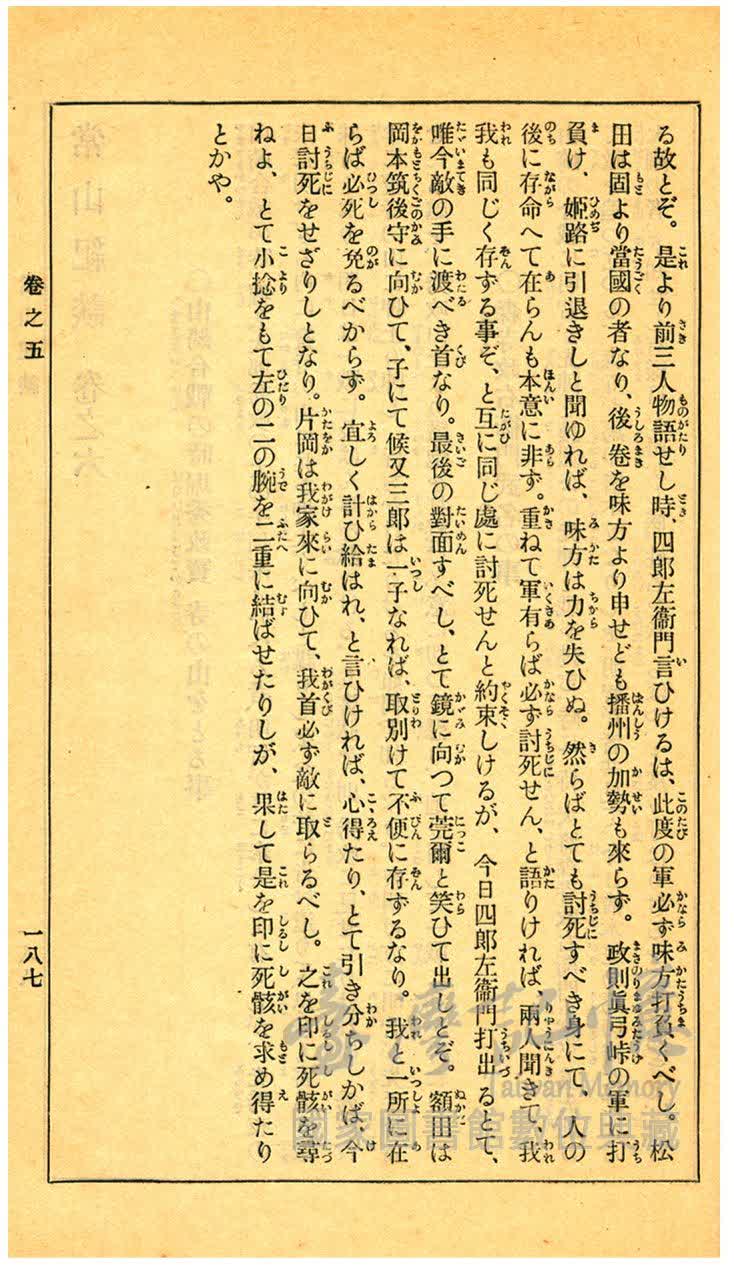 る故とぞ。是より前三人物語せし時、四郎左衞門言ひけるは、此度の軍必ず味方打負くべし。松
田は固より當國の者なり、後卷を味方より申せども播州の加勢も來らず。政則眞弓峠の軍に打
負け、姬路に引退きしと聞ゆれば、味方は力を失ひぬ。然らばとても討死すべき身にて、人の
後に存命へて在らんも本意に非ず。重ねて軍有らば必ず討死せん、と語りければ、兩人聞きて、我
我も同じく存ずる事ぞ、と互に同じ處に討死せんと約束しけるが、今日四郎左衞門打出るとて、
唯今敵の手に渡べき首なり。最後の對面すべし、とて鏡に向つて莞爾と笑ひて出しとぞ。額田は
岡本筑後守に向ひて、子にて候又三郎は一子なれば、取別けて不便に存ずるなり。我と一所に在
らば必死を免るべからず。宜しく計ひ給はれ、と言ひければ、心得たり、とて引き分ちしかば、今
日討死をせざりしとなり。片岡は我家來に向ひて、我首必ず敵に取らるべし。之を印に死骸を尋
ねよ、とて小捻をもて左の二の腕を二重に結ばせたりしが、果して是を印に死骸を求め得たり
とかや。
卷之五
一八七
Taiwan Memory
國家圖書館數位典藏